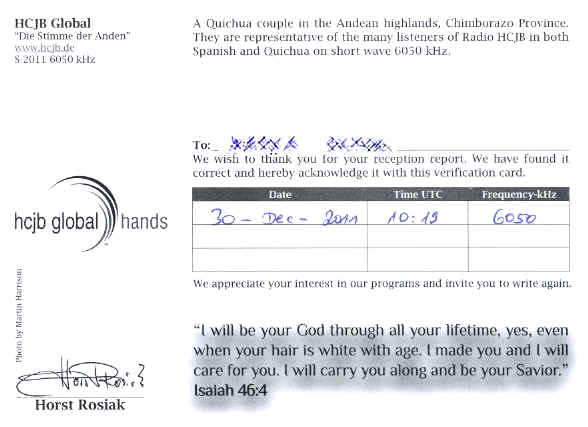 HCJB Global
"Die Stimme der Anden"
www.hcjb.de
S 2011 6050 kHz
A Quichua couple in the Andean highlands, Chimborazo Province.
They are representative of the many listeners of Radio HCJB in both
Spanish and Quichua on short wave 6050 kHz.
To:
We wish to thank you for your reception report. We have found it
correct and hereby acknowledge it with this verification card.
Date Time UTC Frequency-kHz
30 - Dec - 2011 10:19 6050
We appreciate your interest in our programs and invite you to write again.
hcjb global hands
Photo by Martin Harrison
Horst Rosiak
"I will be your God through all your lifetime, yes, even
when your hair is white with age. I made you and I will
care for you. I will carry you along and be your Savior."
Isaiah 46:4